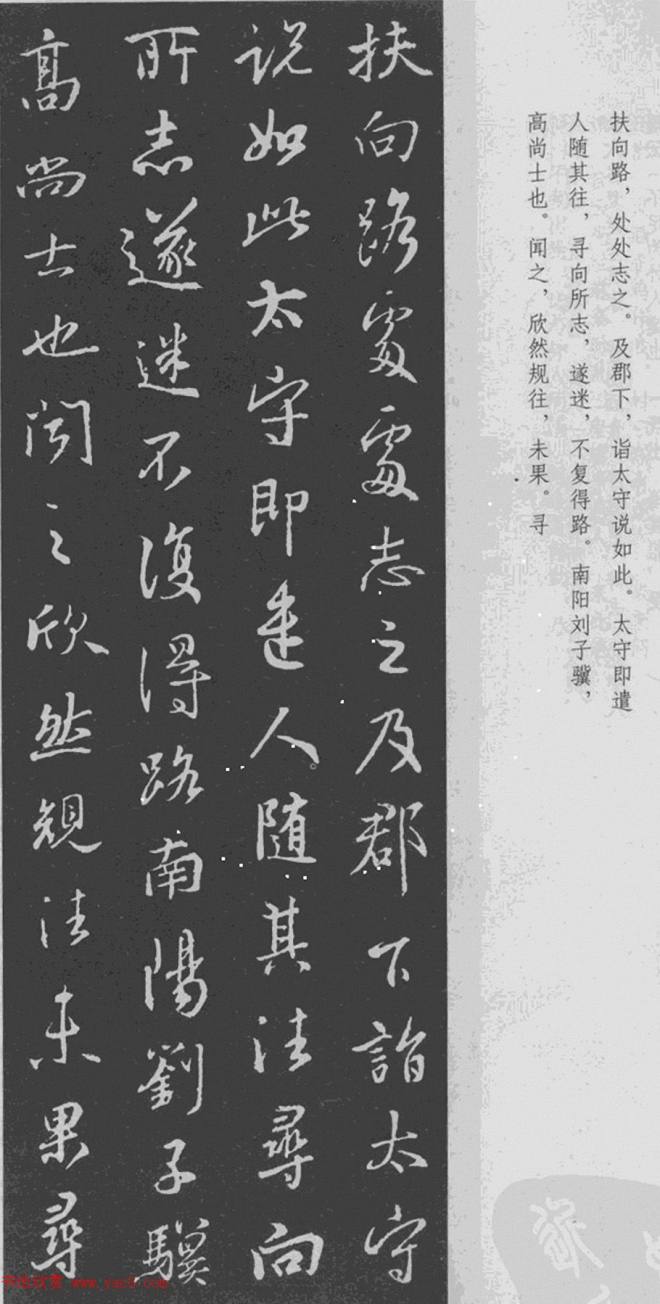 扶向路，处处志之。及郡下，诣太守说如此。太守即遣
人随其往，寻向所志，遂迷，不复得路。南阳刘子骥，
高尚士也。闻之，欣然规往，未果。寻
扶向路處處志之及郡下詣太守
说如此太守即遣人随其往尋向
所志遂迷不復得路南陽劉子驥
高尚士也闻之欣然規往未果尋